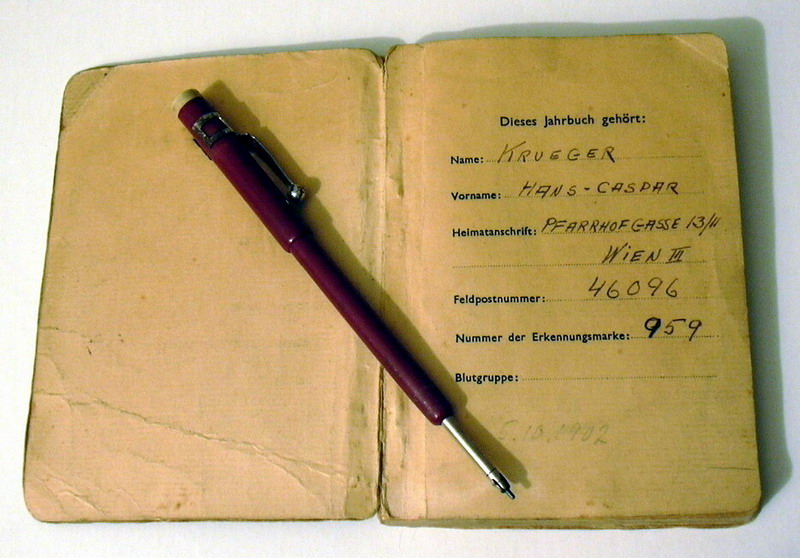 Dieses Jahrbuch gehört:
Name: KRUEGER
Vorname: HANS-CASPAR
Heimatanschrift: PFARRHOFGASSE 13/11
WIEN III
Feldpostnummer: 46096
Nummer der Erkennungsmarke: 959
Blutgruppe:
5.10.1902